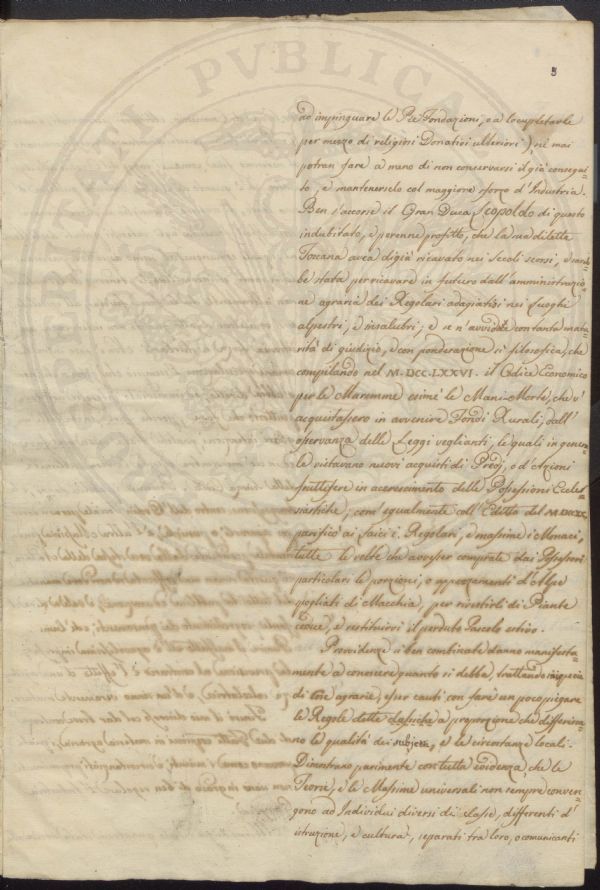 PVBLICA
3
ad impinguare le Pie Fondazioni, o a completarle
per mezzo di religiosi Donativi ulteriori), nè mai
potran fare a meno di non conservarsi il già consegui-
to, e mantenerselo col maggiore sforzo d'Industria.
Ben s'accorse il Gran Duca Leopoldo di questo
indubitato, e perenne profitto, che la sua diletta
Toscana avea digià ricavato nei secoli scorsi, e sareb-
be stata per ricavare in futuro dall'amministrazio-
ne agraria dei Regolari adagiatisi nei luoghi
alpestri, e insalubri; e se n'avvidde con tanta matu-
rità di giudizio, e con ponderazione sì filosofica, che
compilando nel M.DCC.LXXVI. il Codice Economico
per le Maremme esimè le Mani-Morte, che v'
acquistassero in avvenire Fondi Rurali, dall'
osservanza delle Leggi veglianti, le quali in genera-
le vietavano nuovi acquisti di Predj, o d'Azioni
fruttifere in accrescimento delle Possessioni Eccle-
siastiche; com'egualmente coll'Editto del
parificò ai Laici i Regolari, e massime i Monaci,
tutte le volte che avesser comprate dai Possessori
particolari le porzioni, o appezzamenti d'Alpe
spogliati di Macchia, per rivestirli di Piante
e restituirvi il perduto Pascolo estivo.
Providenze sì ben combinate danno manifesta-
mente a conoscere quanto si debba, trattandosi in specie
di cose agrarie, esser cauti con fare un poco piegare
le Regole dette classiche a proporzione che differisco-
no le qualità dei subjetti, e le circostanze locali.
Dimostrano parimente con tutta evidenza, che le
Teorie, e le Massime universali non sempre conven-
gono ad Individui diversi di classe, differenti d'
istruzione, e cultura, separati tra loro, o comunicanti